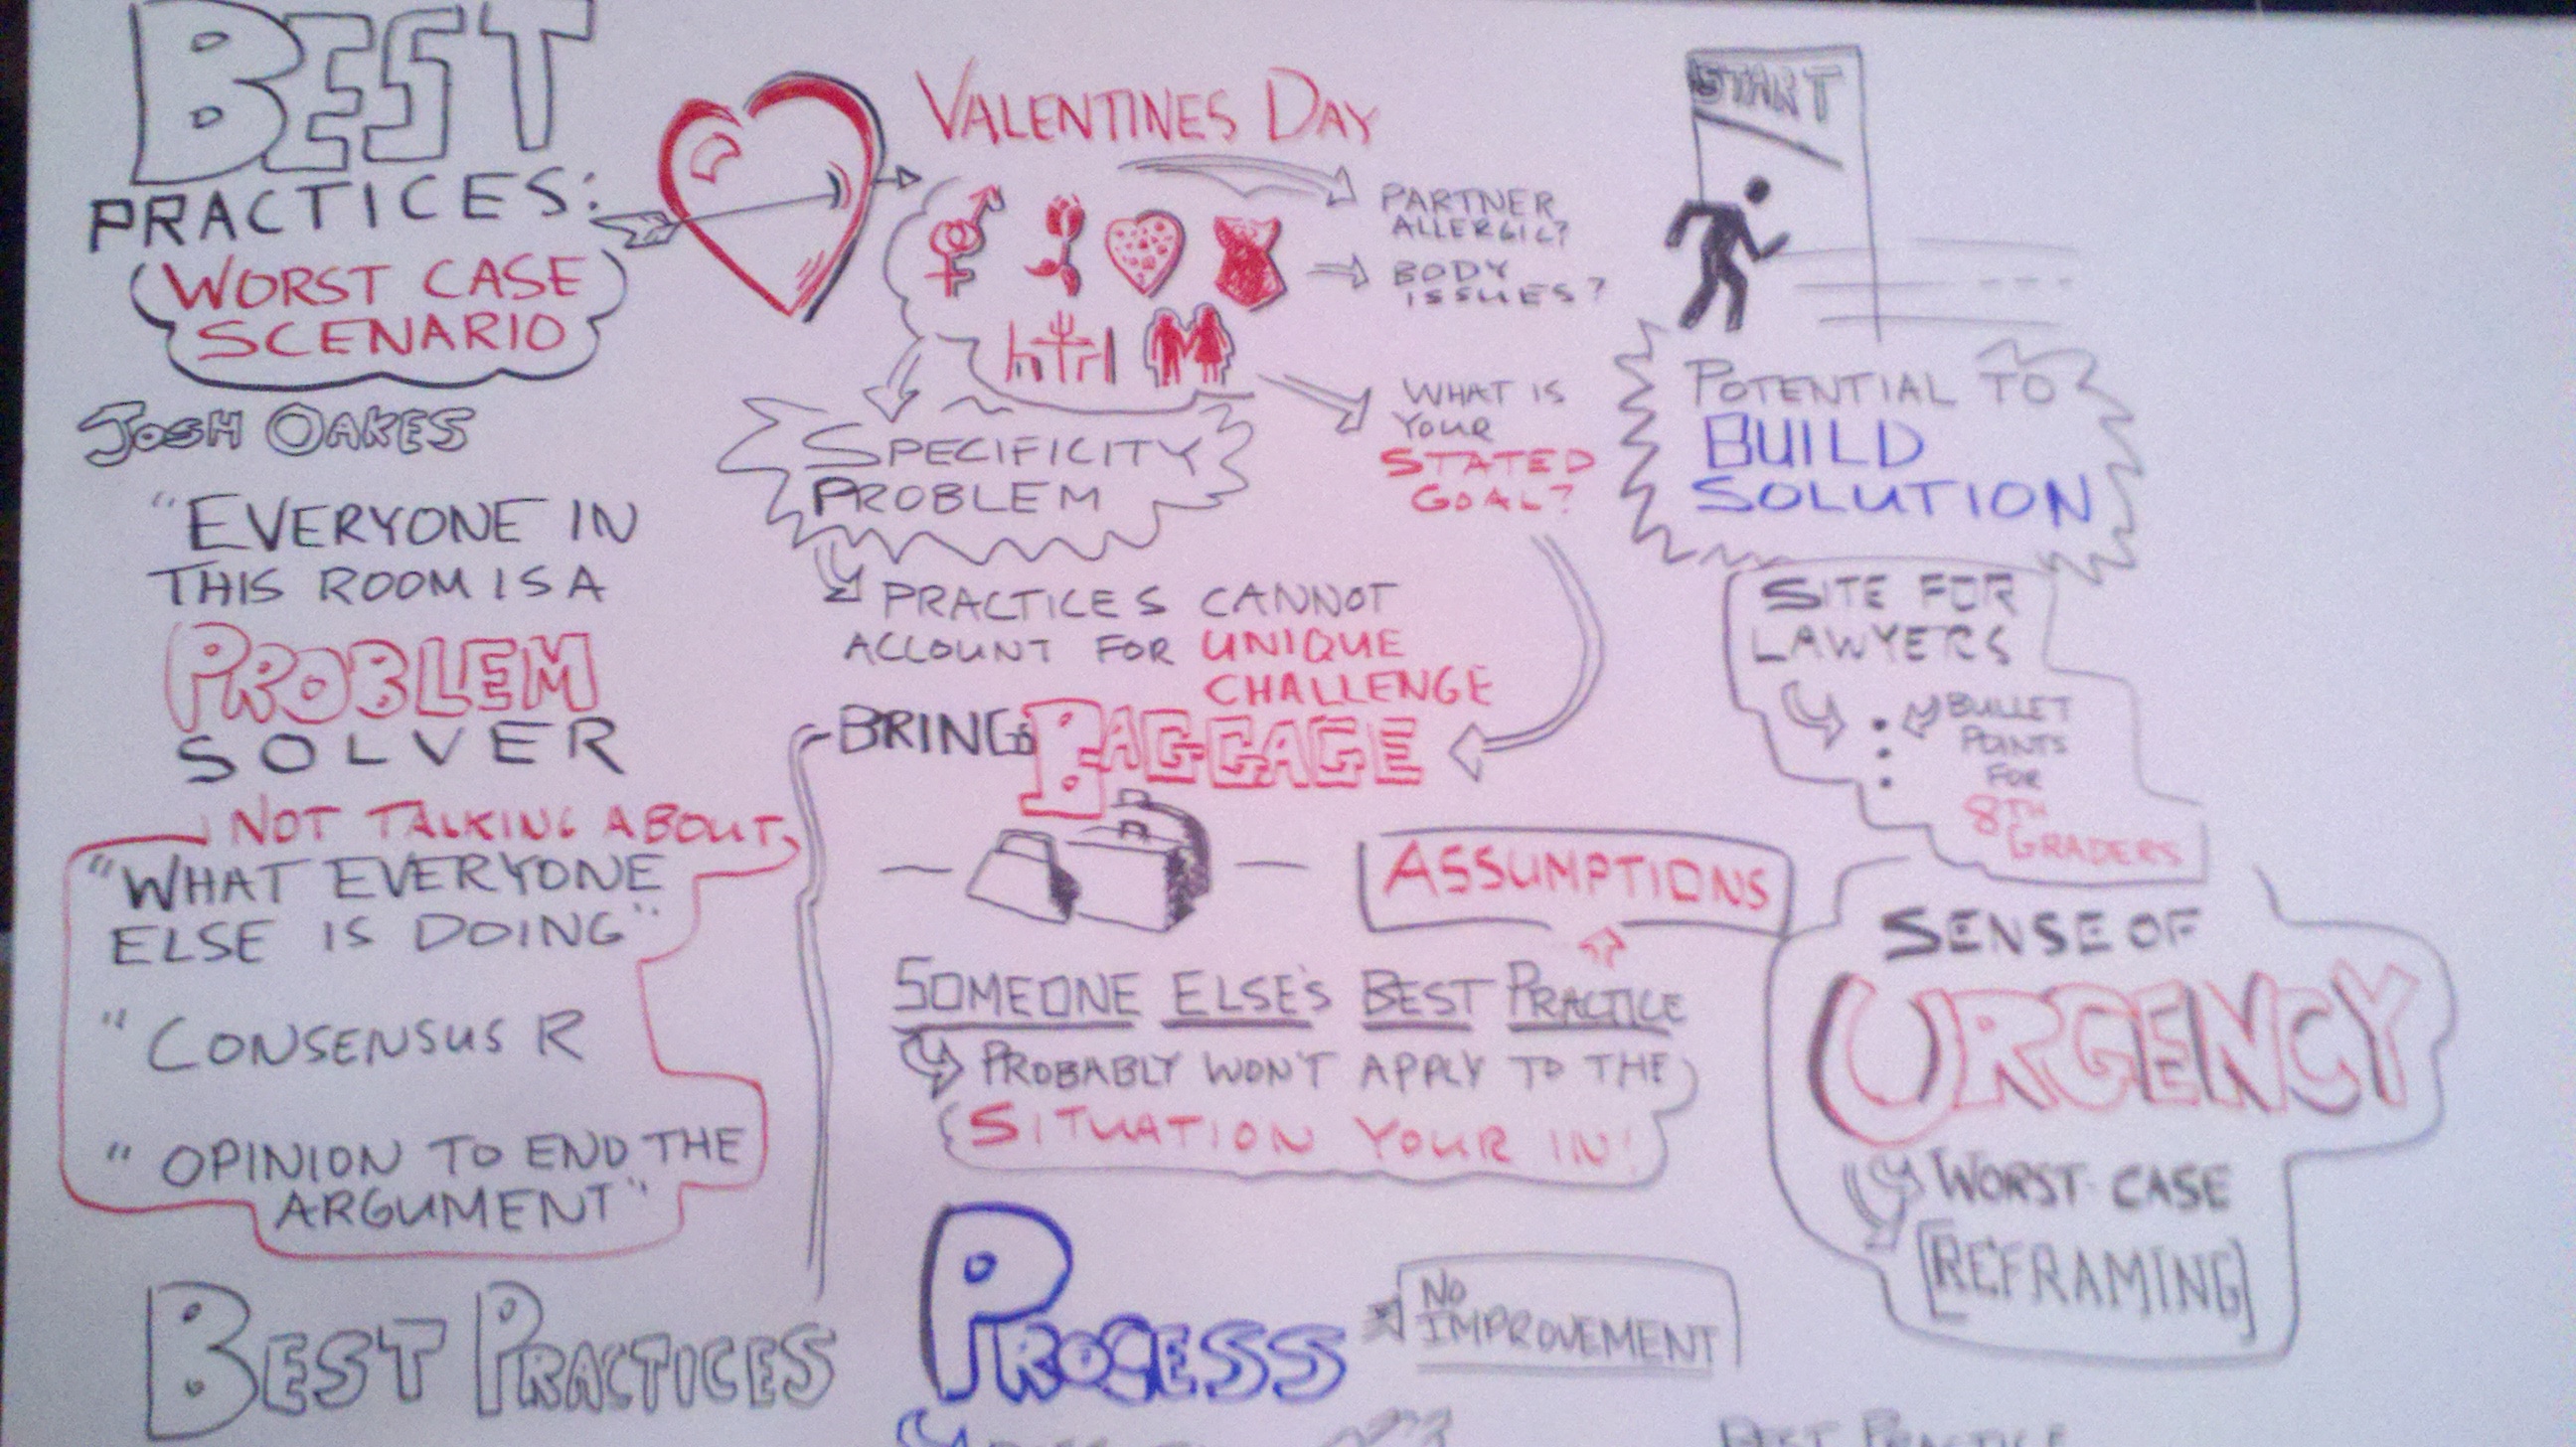 BEST
PRACTICES:
WORST CASE
SCENARIO
JOSH OAKES
"EVERYONE IN
THIS ROOM IS A
PROBLEM
SOLVER
NOT TALKING ABOUT
"WHAT EVERYONE
ELSE IS DOING"
"CONSENSUS R
"OPINION TO END THE
ARGUMENT"
BEST PRACTICES
VALENTINES DAY
PARTNER
ALLERGIC?
BODY
ISSUES?
WHAT IS
YOUR
STATED
GOAL?
SPECIFICITY
PROBLEM
PRACTICES CANNOT
ACCOUNT FOR UNIQUE
CHALLENGE
BRINGS BAGGAGE
ASSUMPTIONS
SOMEONE ELSE'S BEST PRACTICE
PROBABLY WON'T APPLY TO THE
SITUATION YOUR IN!
PROCESS
NO
IMPROVEMENT
START
POTENTIAL TO
BUILD
SOLUTION
SITE FOR
LAWYERS
BULLET
POINTS
FOR
8TH
GRADERS
SENSE OF
URGENCY
WORST CASE
[REFRAMING]
BEST PRACTICE